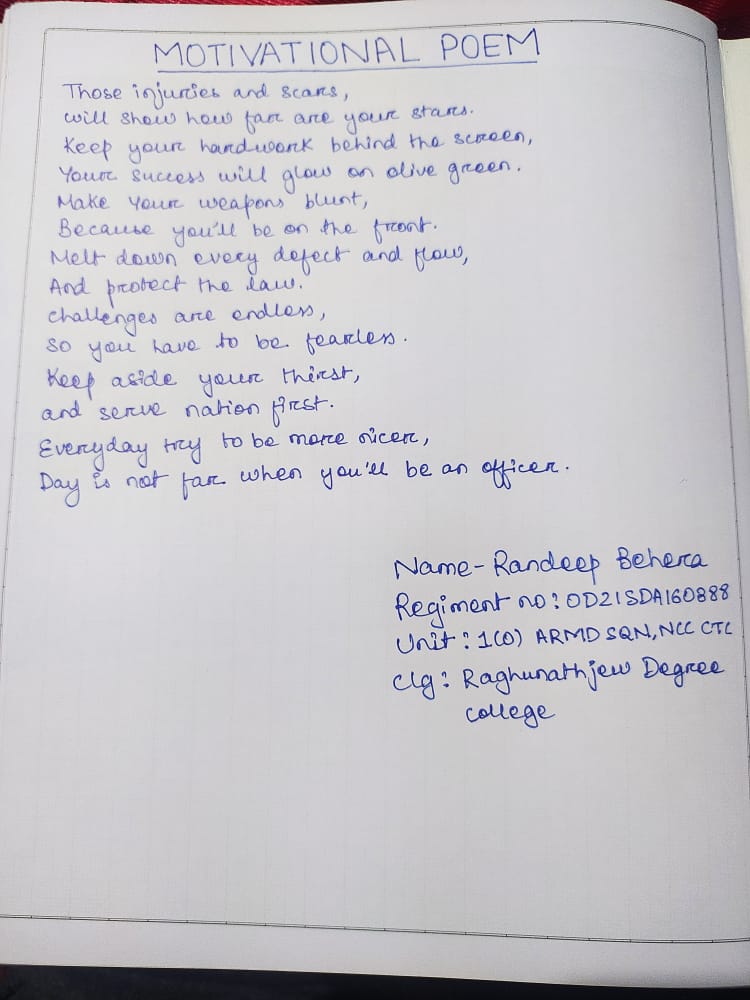 MOTIVATIONAL POEM
Those injuries and scars,
will show how far are your stars.
Keep your hardwork behind the screen,
Your success will glow on olive green.
Make your weapons blunt,
Because you'll be on the front.
Melt down every defect and flow,
And protect the law.
challenges are endless,
so you have to be fearless.
Keep aside your thirst,
and serve nation first.
Everyday try to be more nicer,
Day is not far when you'll be an officer.
Name- Randeep Behera
Regiment no: OD21SDA160888
Unit: 1(O) ARMD SQN, NCC CTC
Clg: Raghunathjew Degree
college